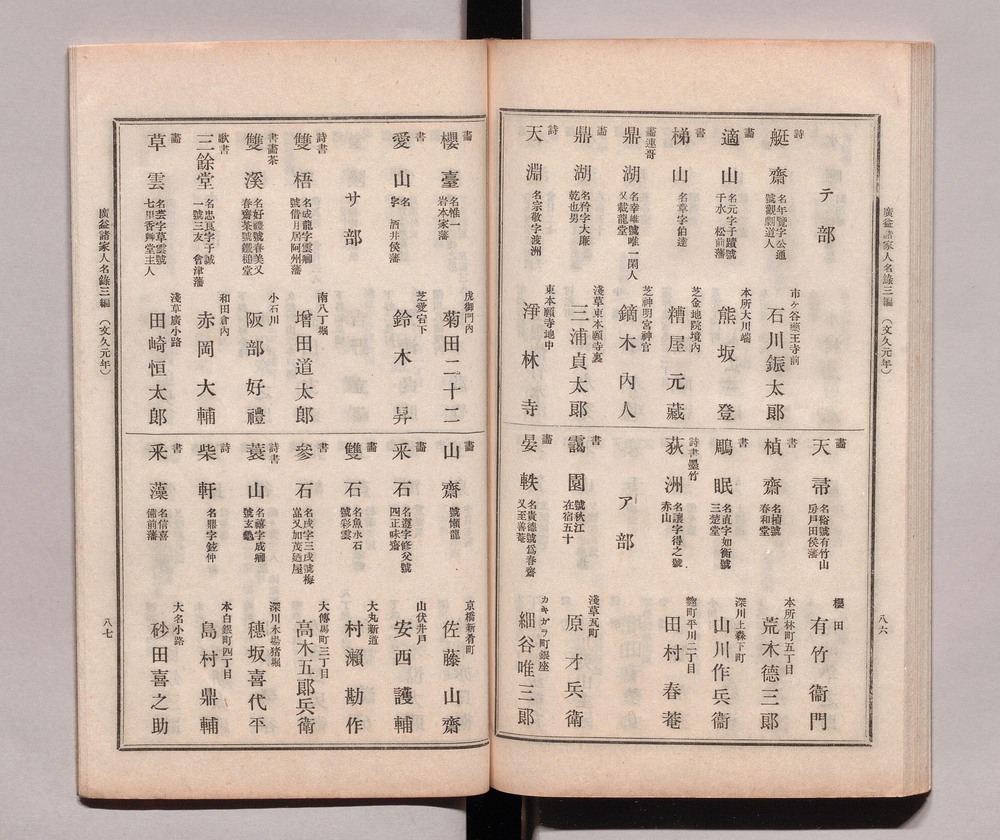 廣益諸家人名錄三編 (文久元年)
八六
テ部
詩 艇齋 名年暨字公通 號觀劇道人 市ヶ谷藥王寺前 石川鋠太郎
畵 適山 名元字子蹟號 千水 松前藩 本所大川端 熊坂登
書 梯山 名章字伯達 芝金地院境内 糟屋元藏
畵連哥 鼎湖 名幸雄號唯一閑人 又載龍堂 芝神明宮神官 鏑木内人
畵 鼎湖 名矜字大廉 乾也男 淺草東本願寺裏 三浦貞太郎
詩 天淵 名宗敬字波洲 東本願寺地中 淨林寺
畵 天帚 名裕號有竹山 房戸田侯藩 櫻田 有竹衞門
書 楨齋 名楨號 春和堂 本所林町五丁目 荒木德三郎
書 鵰眠 名直字如衡號 三楚堂 深川上森下町 山川作兵衞
詩書墨竹 荻洲 名讓字得之號 赤山 麴町平川二丁目 田村春菴
ア部
書 靄園 號秋江 在宿五十 淺草瓦町 原才兵衞
畵 晏軼 名貴德號爲春齋 又至善菴 カキガラ町銀座 細谷唯三郎
畵 櫻臺 名惟一 岩本家藩 虎御門内 菊田二十二
書 愛山 名 字 酒井侯藩 芝愛宕下 鈴木昇
サ部
詩書 雙梧 名成龍字雲卿 號借月居阿州藩 南八丁堀 增田道太郎
書畵茶 雙溪 名好禮號春美又 春齋茶號鐵槌堂 小石川 阪部好禮
歌書 三餘堂 名忠良字子誠 一號三友 會津藩 和田倉内 赤岡大輔
畵 草雲 名芸字草雲號 七里香舞堂主人 淺草廣小路 田崎恒太郎
畵 山齋 號懶龍 京橋新肴町 佐藤山齋
畵 采石 名遵字修父號 四正味齋 山伏井戸 安西護輔
畵 雙石 名魚水石 號彩雲 大丸新道 村瀬勘作
書 參石 名戌字三戌號梅 富又加茂廼屋 大傳馬町三丁目 高木五郎兵衞
詩書 蓑山 名禧字成卿 號玄龜 深川木場猪堀 穗坂喜代平
詩 柴軒 名鼎字鉉仲 本白銀町四丁目 島村鼎輔
書 采藻 名信喜 備前藩 大名小路 砂田喜之助
廣益諸家人名錄三編 (文久元年)
八七